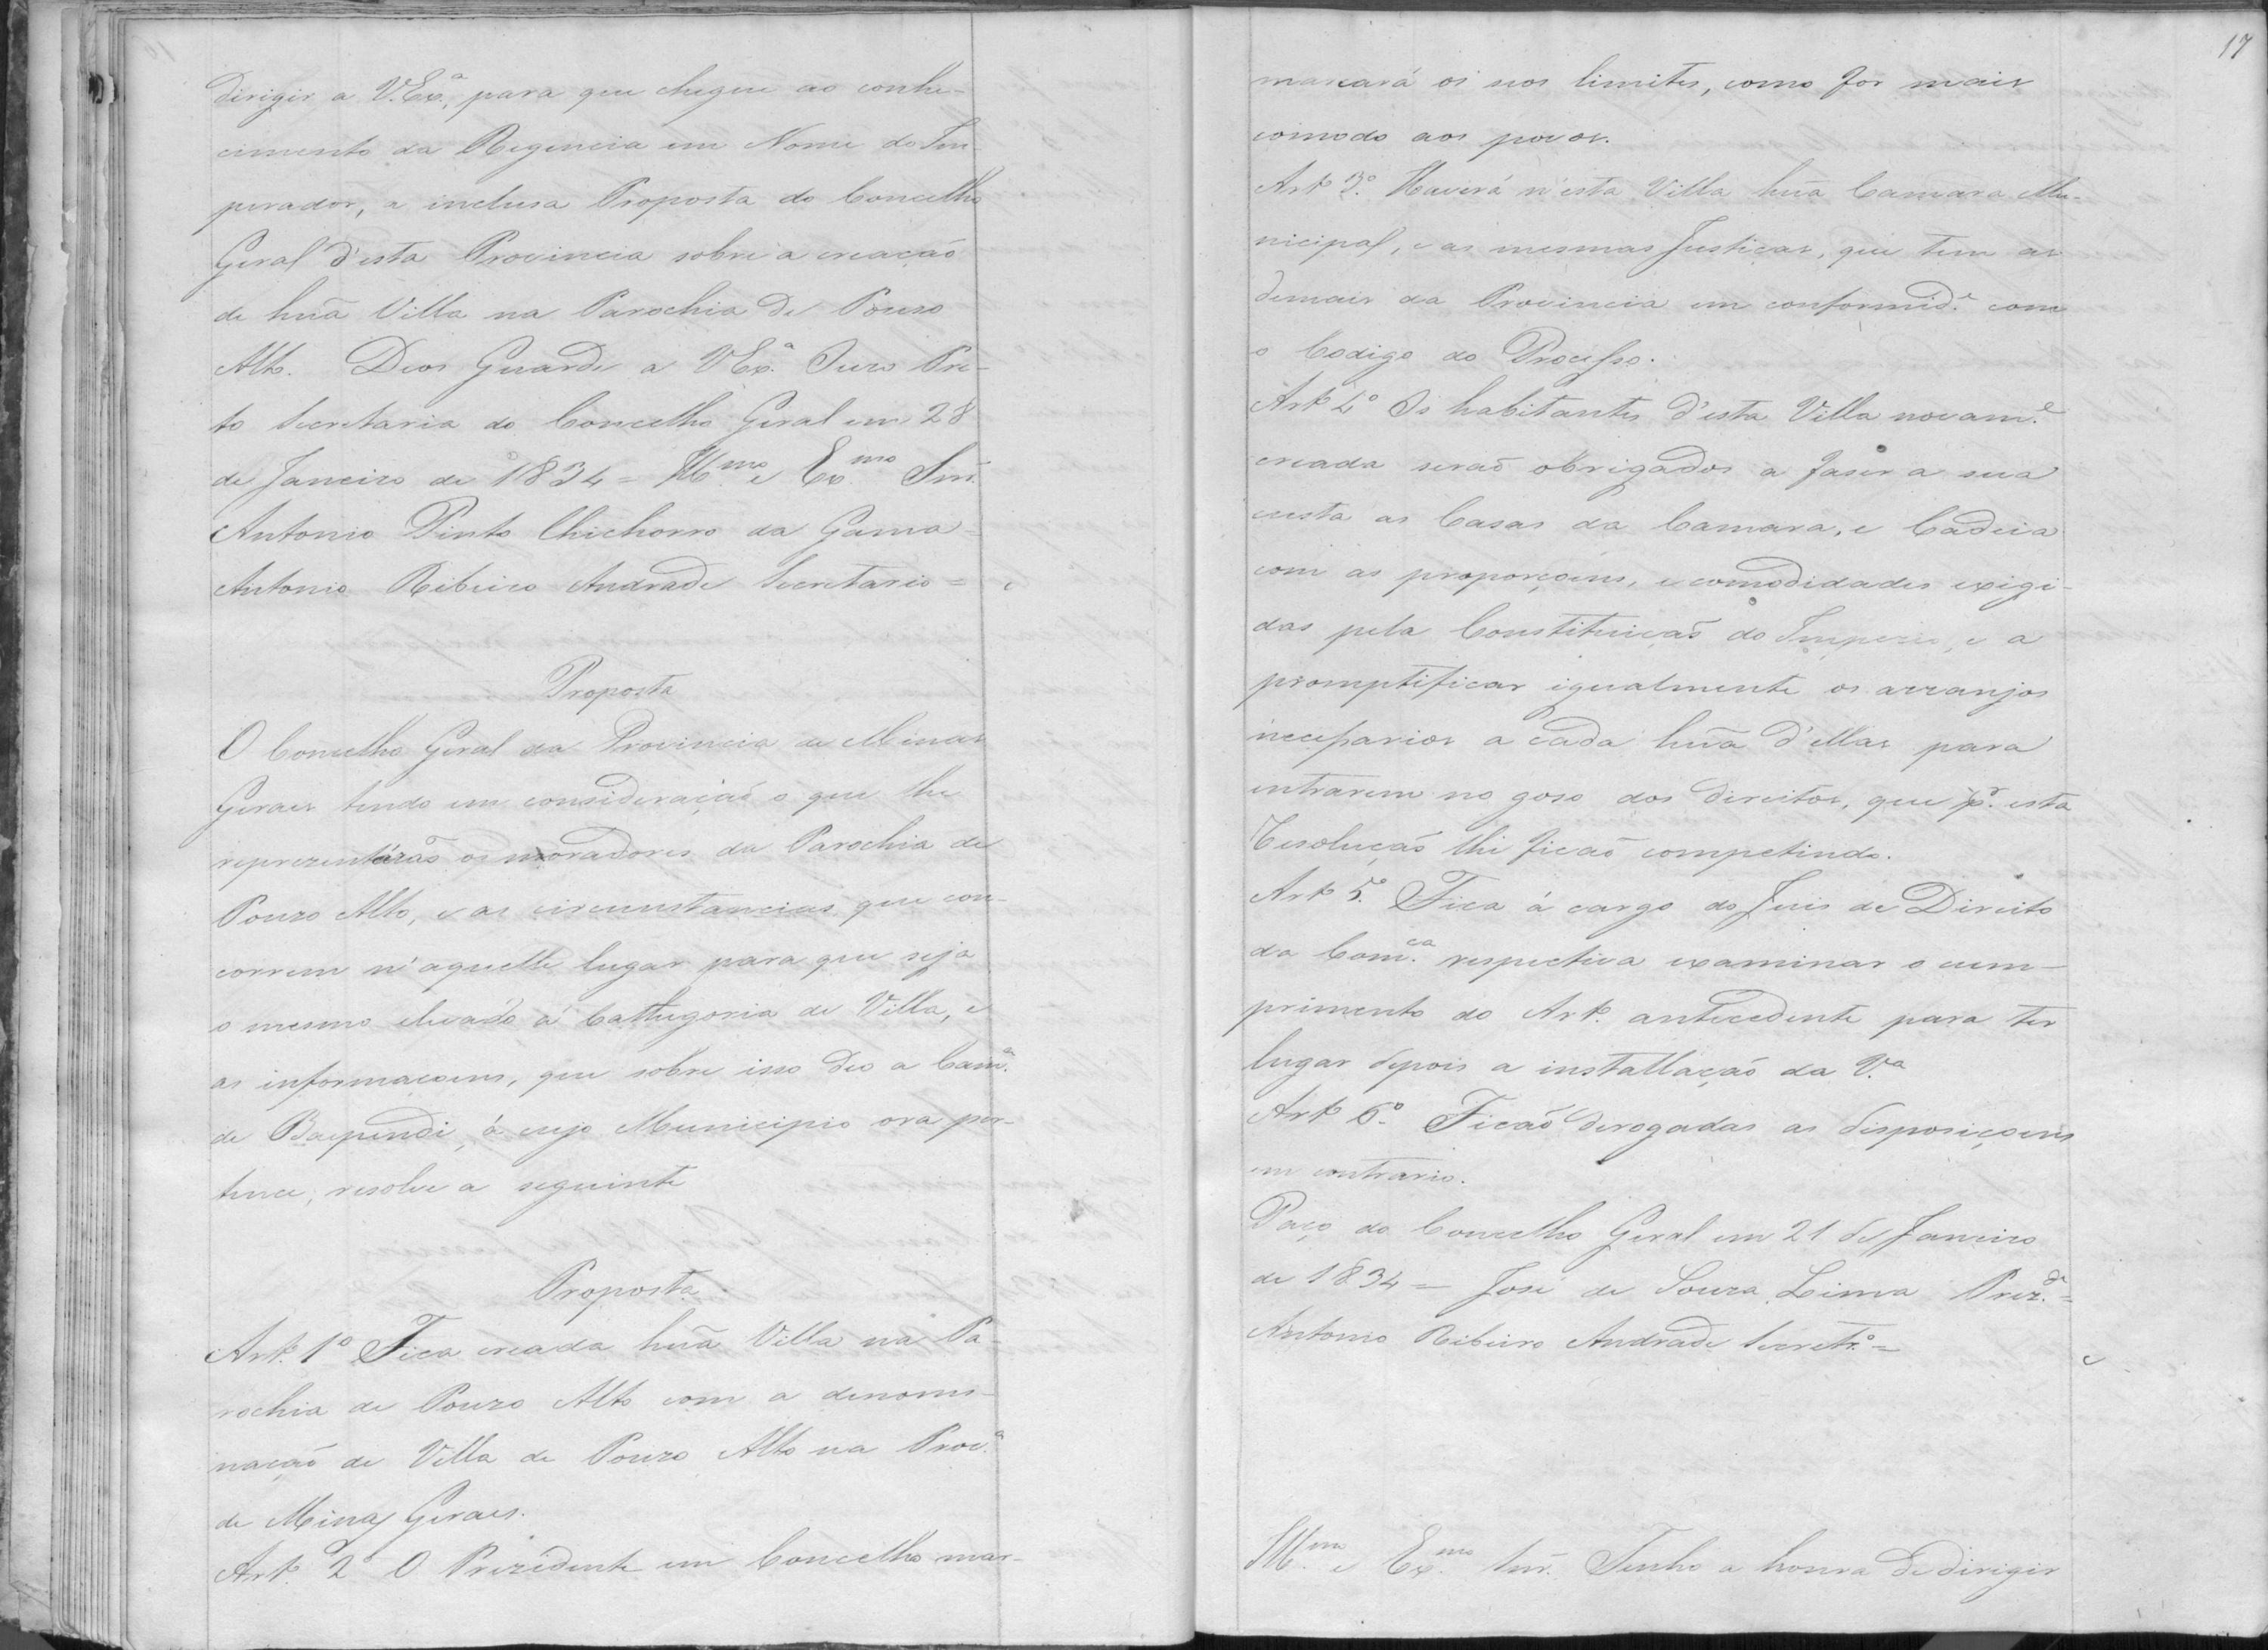 dirigir a V.Ex.ª, para que chegue ao conhe-
cimento da Regencia em Nome do Im-
perador, a inclusa Proposta do Concelho
Geral d'esta Provincia sobre a creação
de huã Villa na Parochia de Pouso
Alto. Deos Guarde a VEx.ª Ouro Pre-
to Secretaria do Concelho Geral em 28
de Janeiro de 1834 = Ill.mo e Ex.mo Snr.
Antonio Pinto Chichorro da Gama =
Antonio Ribeiro Andrade Secretario =
Proposta
O Concelho Geral da Provincia de Minas
Geraes tendo em consideração o que lhe
reprezentárão os moradores da Parochia de
Pouzo Alto, e as circunstancias que con-
correm n'aquelle lugar para que seja
o mesmo elevado á Cathegoria de Villa, e
as informaçoens, que sobre isso deo a Cam.ª
de Baependi, á cujo Municipio ora per-
tence, resolve a seguinte
Proposta
Art.º 1º Fica creada huã Villa na Pa-
rochia de Pouzo Alto com a denomi-
nação de Villa de Pouzo Alto na Prov.ª
de Minas Geraes.
Art.º 2º O Prezidente em Concelho mar-
17
marcará os seos limites, como for mais
comodo aos povos.
Artº 3º. Haverá n'esta Villa huã Camara Mu-
nicipal, e as mesmas Justiças, que tem as
demais da Provincia em conformid.e com
o Codigo do Processo.
Artº 4º Os habitantes d'esta Villa novam.e
creada serão obrigados a faser a sua
custa as Casas da Camara, e Cadeia
com as proporçoens, e comodidades exigi-
das pela Constituição do Imperio, e a
promptificar igualmente os arranjos
necessarios a cada huã d'ellas para
entrarem no goso dos direitos, que p.r esta
Resolução lhe ficão competindo.
Artº 5º. Fica á cargo do Juis de Direito
da Com.ca respectiva examinar o cum-
primento do Artº. antecedente para ter
lugar depois a installação da V.a
Artº 6º. Ficão derogadas as disposiçoens
em contrario.
Paço do Concelho Geral em 21 de Janeiro
de 1834 = José de Souza Lima Prez.de =
Antonio Ribeiro Andrade Secretr.º =
Ill.mo e Ex.mo Snr. Tenho a honra de dirigir